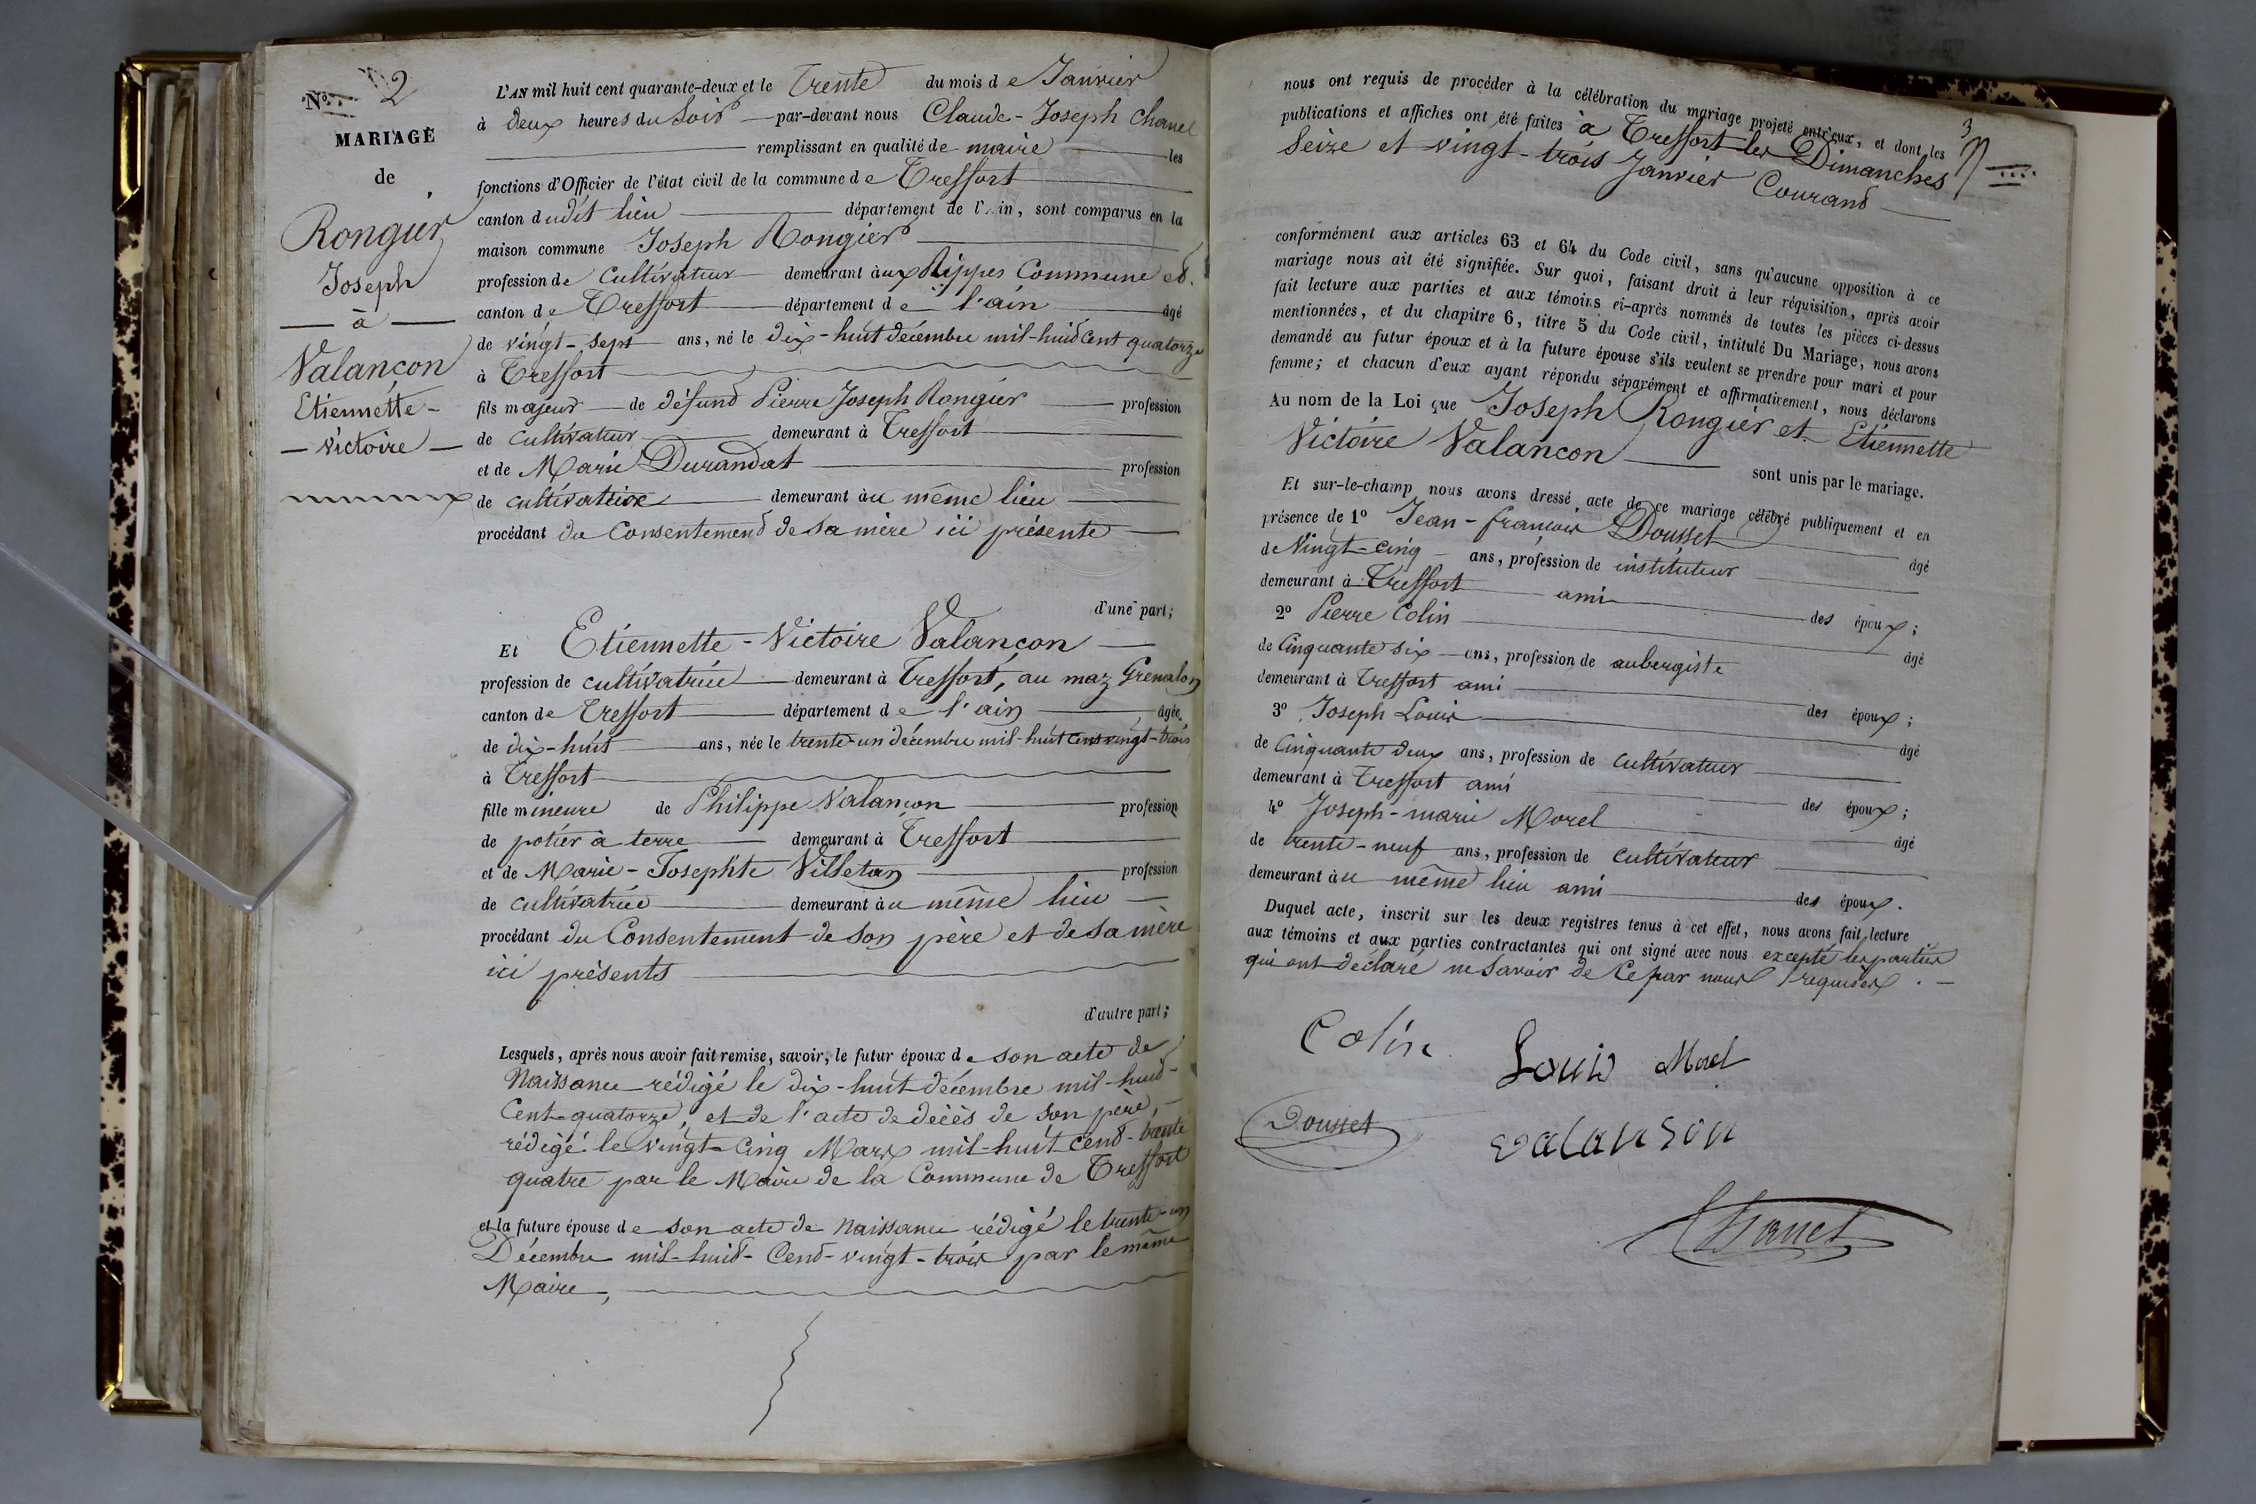 N° 2
MARIAGE
de
Rongier
Joseph
— à —
Valançon
Etiennette -
- Victoire -
L'AN mil huit cent quarante-deux et le Trente du mois de Janvier
à deux heures du Soir par-devant nous Claude-Joseph Chanel
remplissant en qualité de maire les
fonctions d'Officier de l'état civil de la commune de Treffort
canton dudit lieu département de l'Ain, sont comparus en la
maison commune Joseph Rongier
profession de Cultivateur demeurant aux Rippes Commune et
canton de Treffort département de l'ain âgé
de vingt-sept ans, né le dix-huit décembre mil-huit Cent quatorze
à Treffort
fils majeur de défunt Pierre Joseph Rongier profession
de cultivateur demeurant à Treffort
et de Marie Durandat profession
de cultivatrice demeurant au même lieu
procédant du Consentement de sa mère ici présente
d'une part;
Et Etiennette-Victoire Valancon
profession de cultivatrice demeurant à Treffort, au maz Grenalon
canton de Treffort département de l'ain âgée
de dix-huit ans, née le trente-un décembre mil-huit cent vingt-trois
à Treffort
fille mineure de Philippe Valançon profession
de potier à terre demeurant à Treffort
et de Marie-Josephte Villetan profession
de cultivatrice demeurant au même lieu
procédant du Consentement de son père et de sa mère
ici présents
d'autre part;
Lesquels, après nous avoir fait remise, savoir, le futur époux de son acte de
Naissance rédigé le dix-huit décembre mil-huit-
Cent-quatorze, et de l'acte de décès de son père,
rédigé le vingt-cinq Mars mil-huit cent-trente
quatre par le Maire de la Commune de Treffort
et la future épouse de son acte de Naissance rédigé le trente-un
Décembre mil-huit-Cent-vingt-trois par le même
Maire,
3
nous ont requis de procéder à la célébration du mariage projeté entr'eux, et dont les
publications et affiches ont été faites à Treffort les Dimanches
Seize et vingt-trois Janvier Courant
conformément aux articles 63 et 64 du Code civil, sans qu'aucune opposition à ce
mariage nous ait été signifiée. Sur quoi, faisant droit à leur réquisition, après avoir
fait lecture aux parties et aux témoins ci-après nommés de toutes les pièces ci-dessus
mentionnées, et du chapitre 6, titre 5 du Code civil, intitulé Du Mariage, nous avons
demandé au futur époux et à la future épouse s'ils veulent se prendre pour mari et pour
femme; et chacun d'eux ayant répondu séparément et affirmativement, nous déclarons
Au nom de la Loi que Joseph Rongier et Etiennette
Victoire Valancon sont unis par le mariage.
Et sur-le-champ nous avons dressé acte de ce mariage célébré publiquement et en
présence de 1° Jean-françois Dousset âgé
de Vingt-cinq ans, profession de instituteur
demeurant à Treffort ami des époux;
2° Pierre Colin âgé
de Cinquante six ans, profession de aubergiste
demeurant à Treffort ami des époux;
3° Joseph Louis âgé
de Cinquante deux ans, profession de cultivateur
demeurant à Treffort ami des époux;
4° Joseph-marie Morel âgé
de trente-neuf ans, profession de cultivateur
demeurant au même lieu ami des époux.
Duquel acte, inscrit sur les deux registres tenus à cet effet, nous avons fait lecture
aux témoins et aux parties contractantes qui ont signé avec nous excepté les parties
qui ont déclaré ne savoir de ce par nous requises.
Colin Louis Morel
Dousset valanson
Chanel